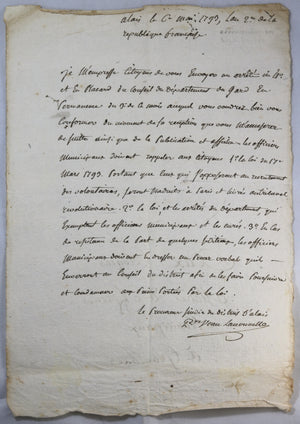 alais le 6. mai, 1793, L'an 2me de la
republique française
Je M'empresse Citoyens de vous Envoyer un arrêté in 4°
et En Placard du Conseil du Département du Gard En
Permanence du 3 de ce mois auquel vous voudrez bien vous
Conformer du moment de la reception que vous M'accuserez
de suitte ainsi que de la Publication et affiche. les officiers
Municipaux doivent rappeler aux citoyens 1° la loi du
Mars 1793. Portant que ceux qui s'opposeront au recrutement
des volontaires, seront traduits à Paris et livrés au tribunal
revolutionaire. 2° la loi, et les arrêtés du département, qui
Exemptent les officiers municipaux et les curés. 3° En Cas
de refus de la Part de quelques
Municipaux doivent en dresser un Procès verbal qu'ils
Enverront au Conseil du district afin de les faire Poursuivre
et Condamner aux Peines Portées Par la loi.
le Procureur sindic du district d'alais